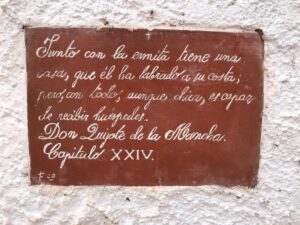 Junto con la ermita tiene una
casa, que él ha labrado a su costa;
pero, con todo, aunque chica, es capaz
de recibir huéspedes.
Don Quijote de la Mancha.
Capitulo XXIV.